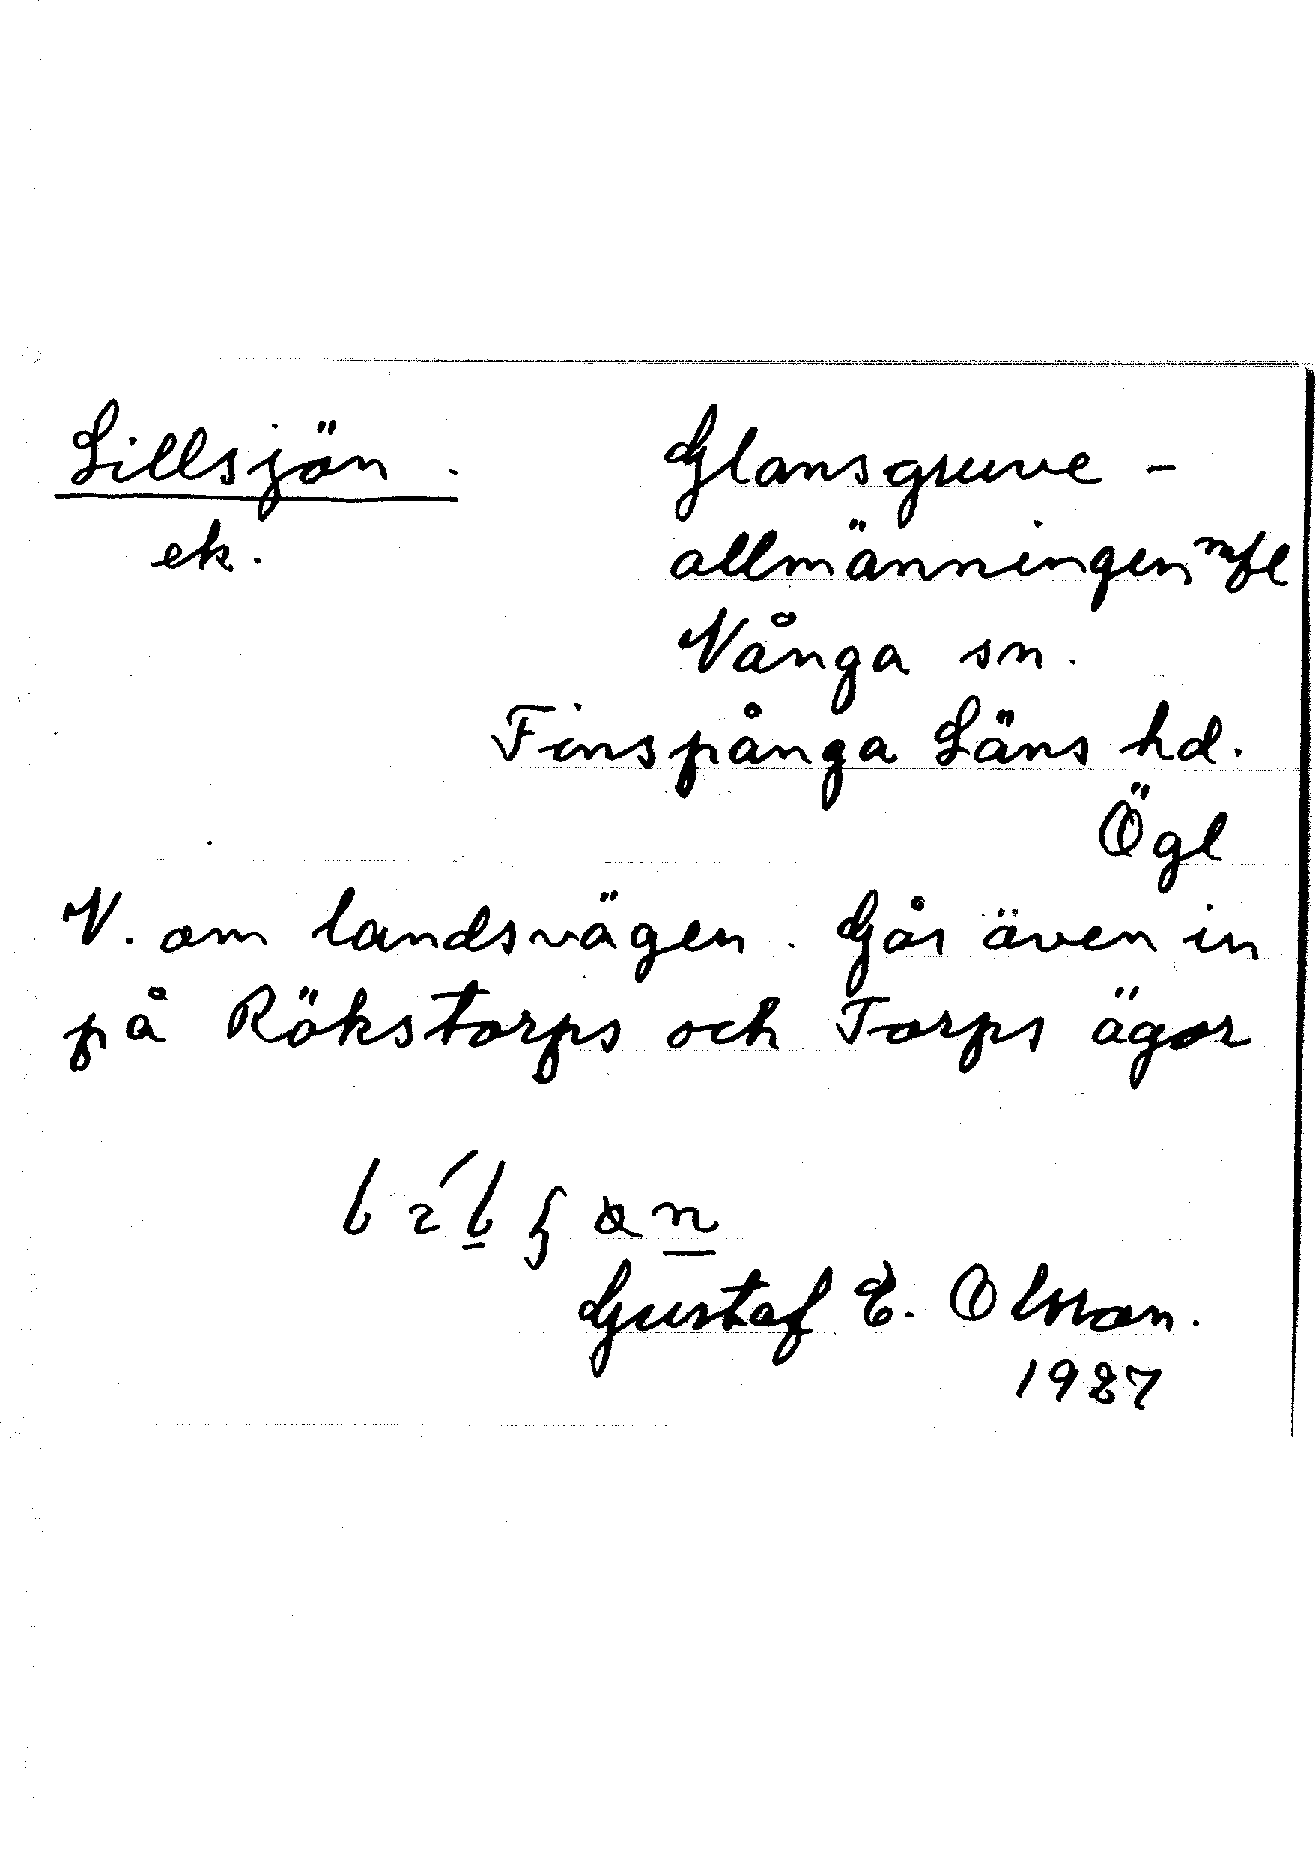 Lillsjön.
Glansgruve-
ek.
allmänningen mfl
Vånga sn.
Finspånga Läns hd.
Ögl
V. om landsvägen. Går även in
på Rökstorps och Torps ägor
Gustaf E. Olsson.
1927